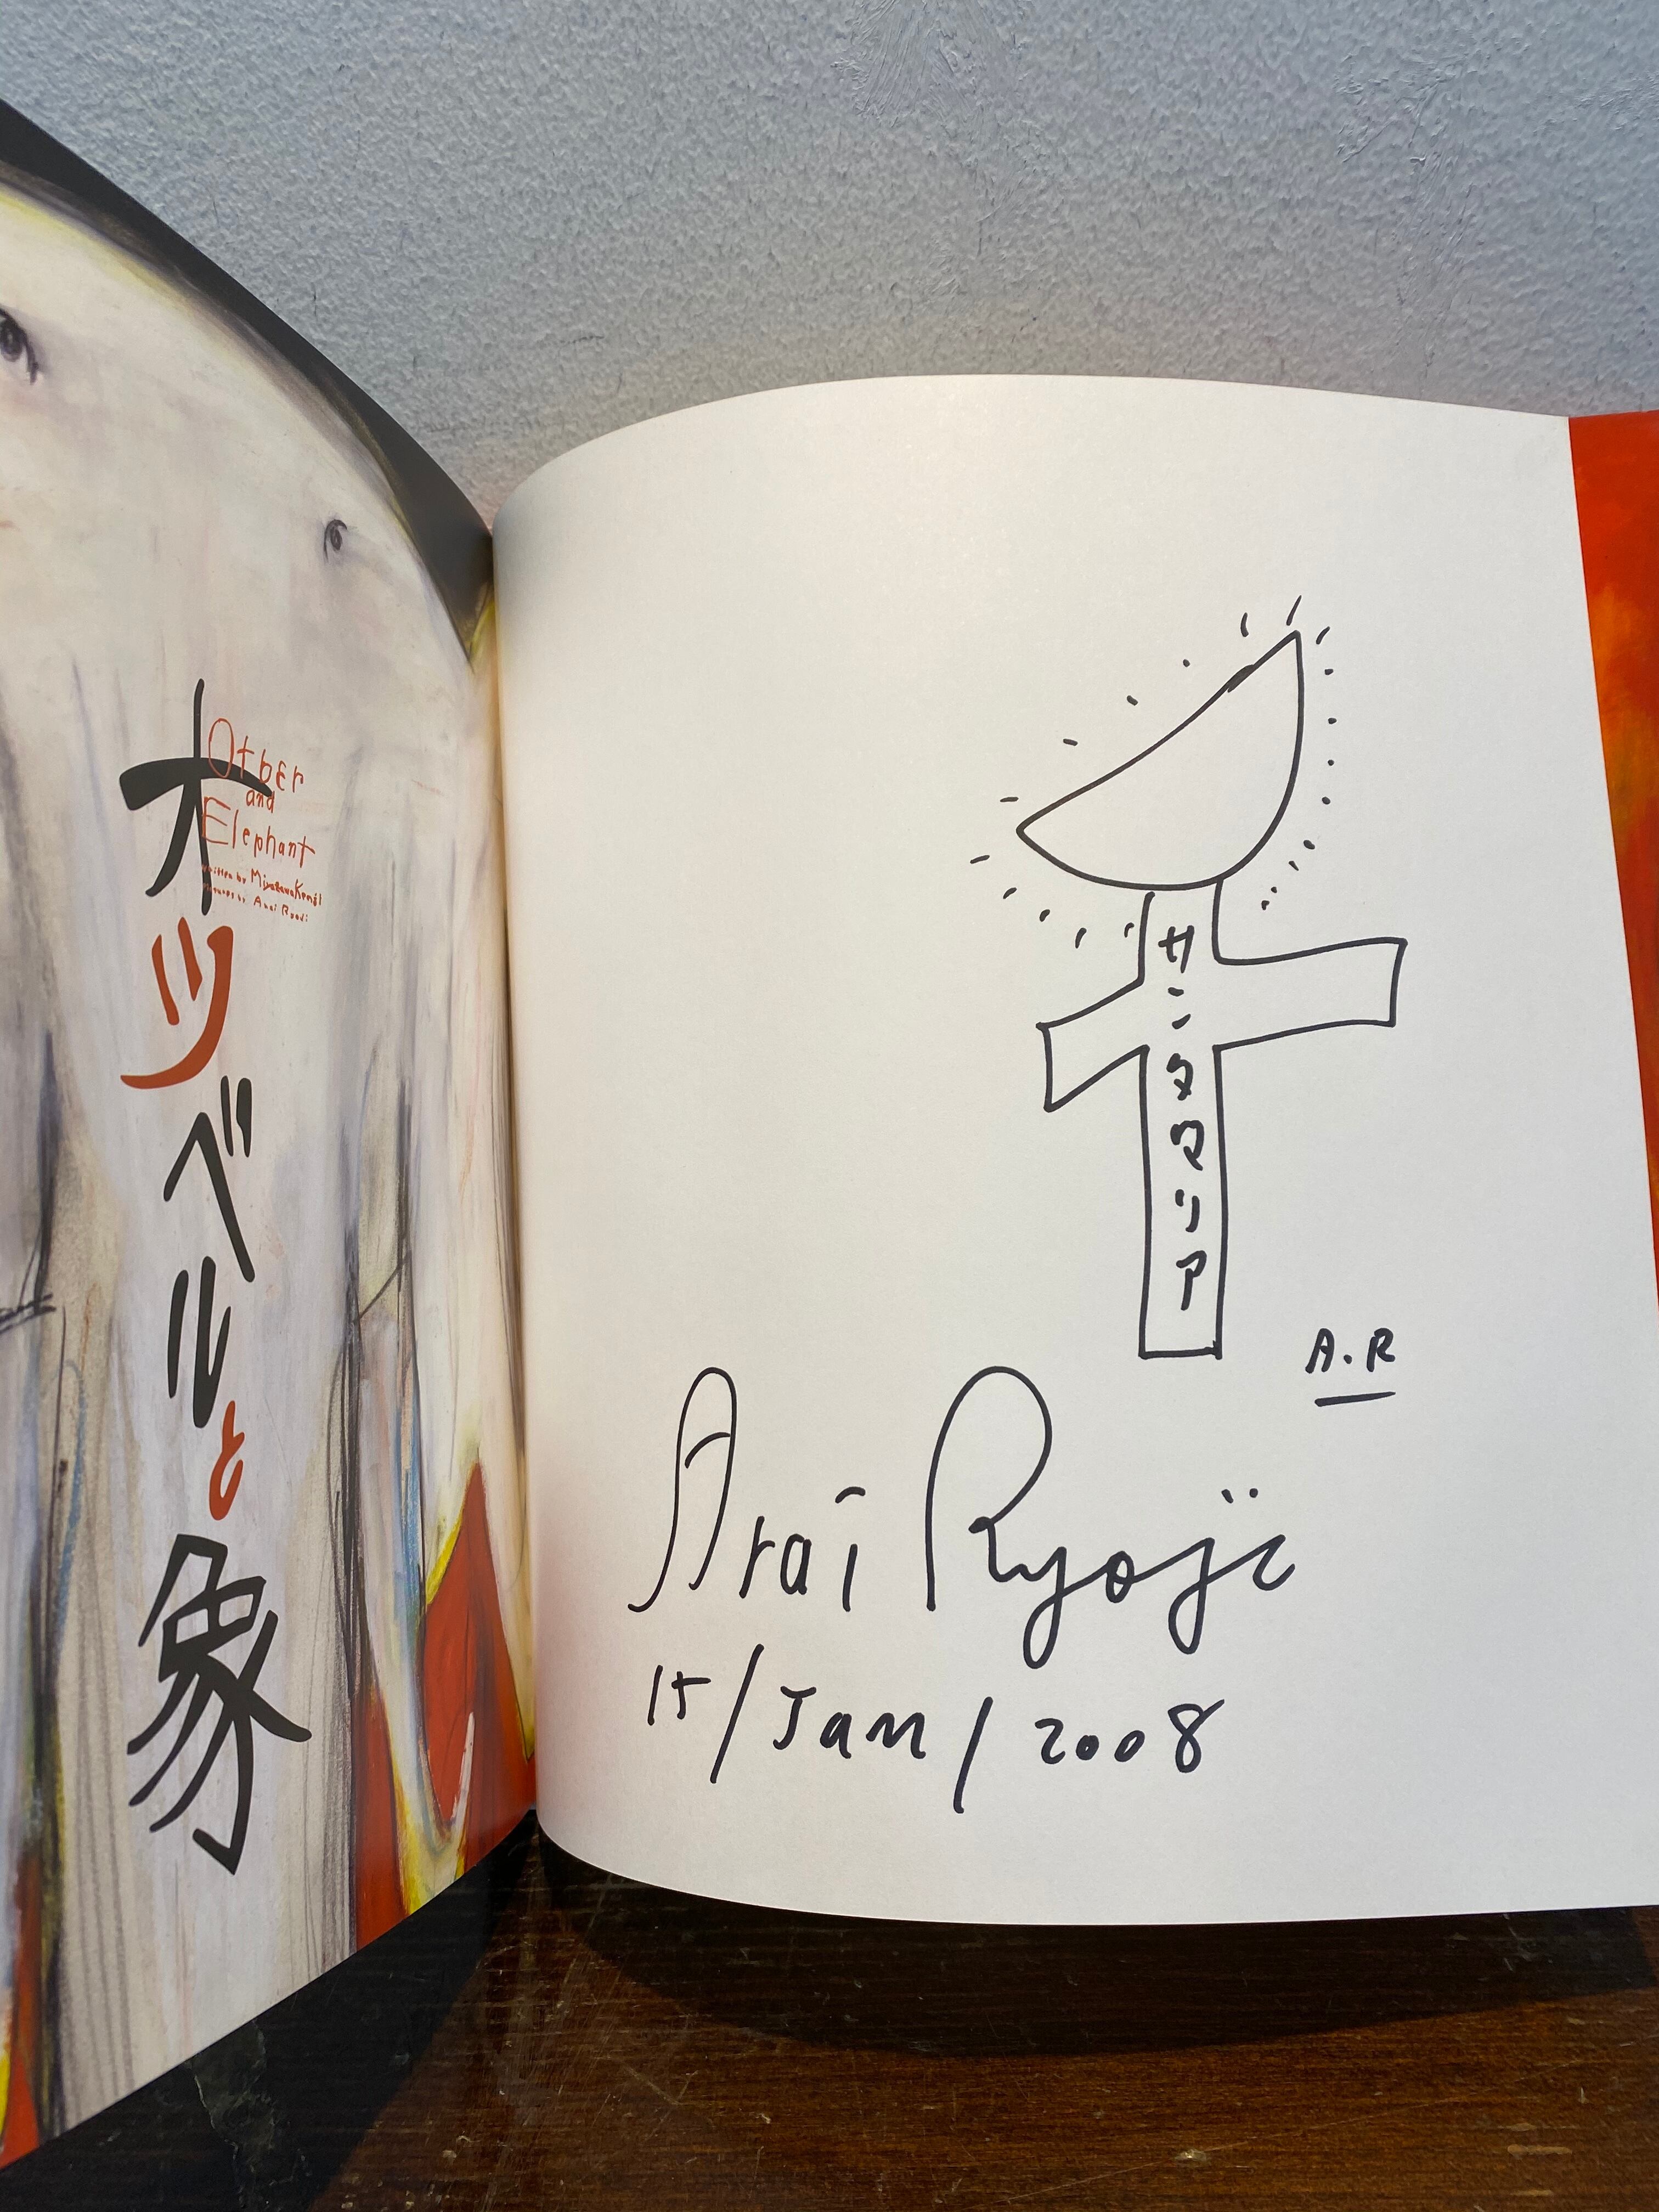 オツベルと象
Otber
and
Elephant
written by Miyazawa Kenji
Pictures by Arai Ryoji
サンタマリア
A.R
Arai Ryoji
15/Jan/2008